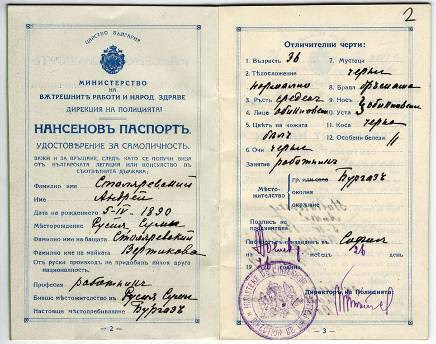 ЦАРСТВО БЪЛГАРИЯ
МИНИСТЕРСТВО
НА
ВѪТРЕШНИТѢ РАБОТИ И НАРОД. ЗДРАВЕ
ДИРЕКЦИЯ НА ПОЛИЦИЯТА
НАНСЕНОВЪ ПАСПОРТЪ.
УДОСТОВѢРЕНИЕ ЗА САМОЛИЧНОСТЬ.
ВАЖИ И ЗА ВРЪЩАНЕ, СЛЕДЪ КАТО СЕ ПОЛУЧИ ВИЗА
ОТЪ БЪЛГАРСКАТА ЛЕГАЦИЯ ИЛИ КОНСУЛСТВО ВЪ
СЪОТВЕТНАТА ДЪРЖАВА:
Фамилно име Столяревский
Име Андрей
Дата на рождението 5-IV-1890
Мѣсторождение Русия
Фамилно име на бащата Столяревский
Фамилно име на майката
Отъ руски произходъ, не придобилъ никоя друга
националность.
Професия работникъ
Бивше мѣстожителство Русия
Настояще мѣстопребивание Бургазъ
— 2 —
2
Отличителни черти:
1. Възрасть 36
2. Тѣлосложение
нормално
3. Ръстъ среденъ
4. Лице обикновено
5. Цвѣтъ на кожата
бѣлъ
6. Очи черни
7. Мустаци черни
8. Брада бръсната
9. Носъ обикновени
10. Уста
11. Коса черна
12. Особени белези //
Занятие работникъ
Мѣстожителство
гр. или село Бургазъ
околия
окръжие
Подпись на
Паспортътъ е издаденъ въ София
на месецъ 26 день
1926
Директоръ на Полицията:
— 3 —